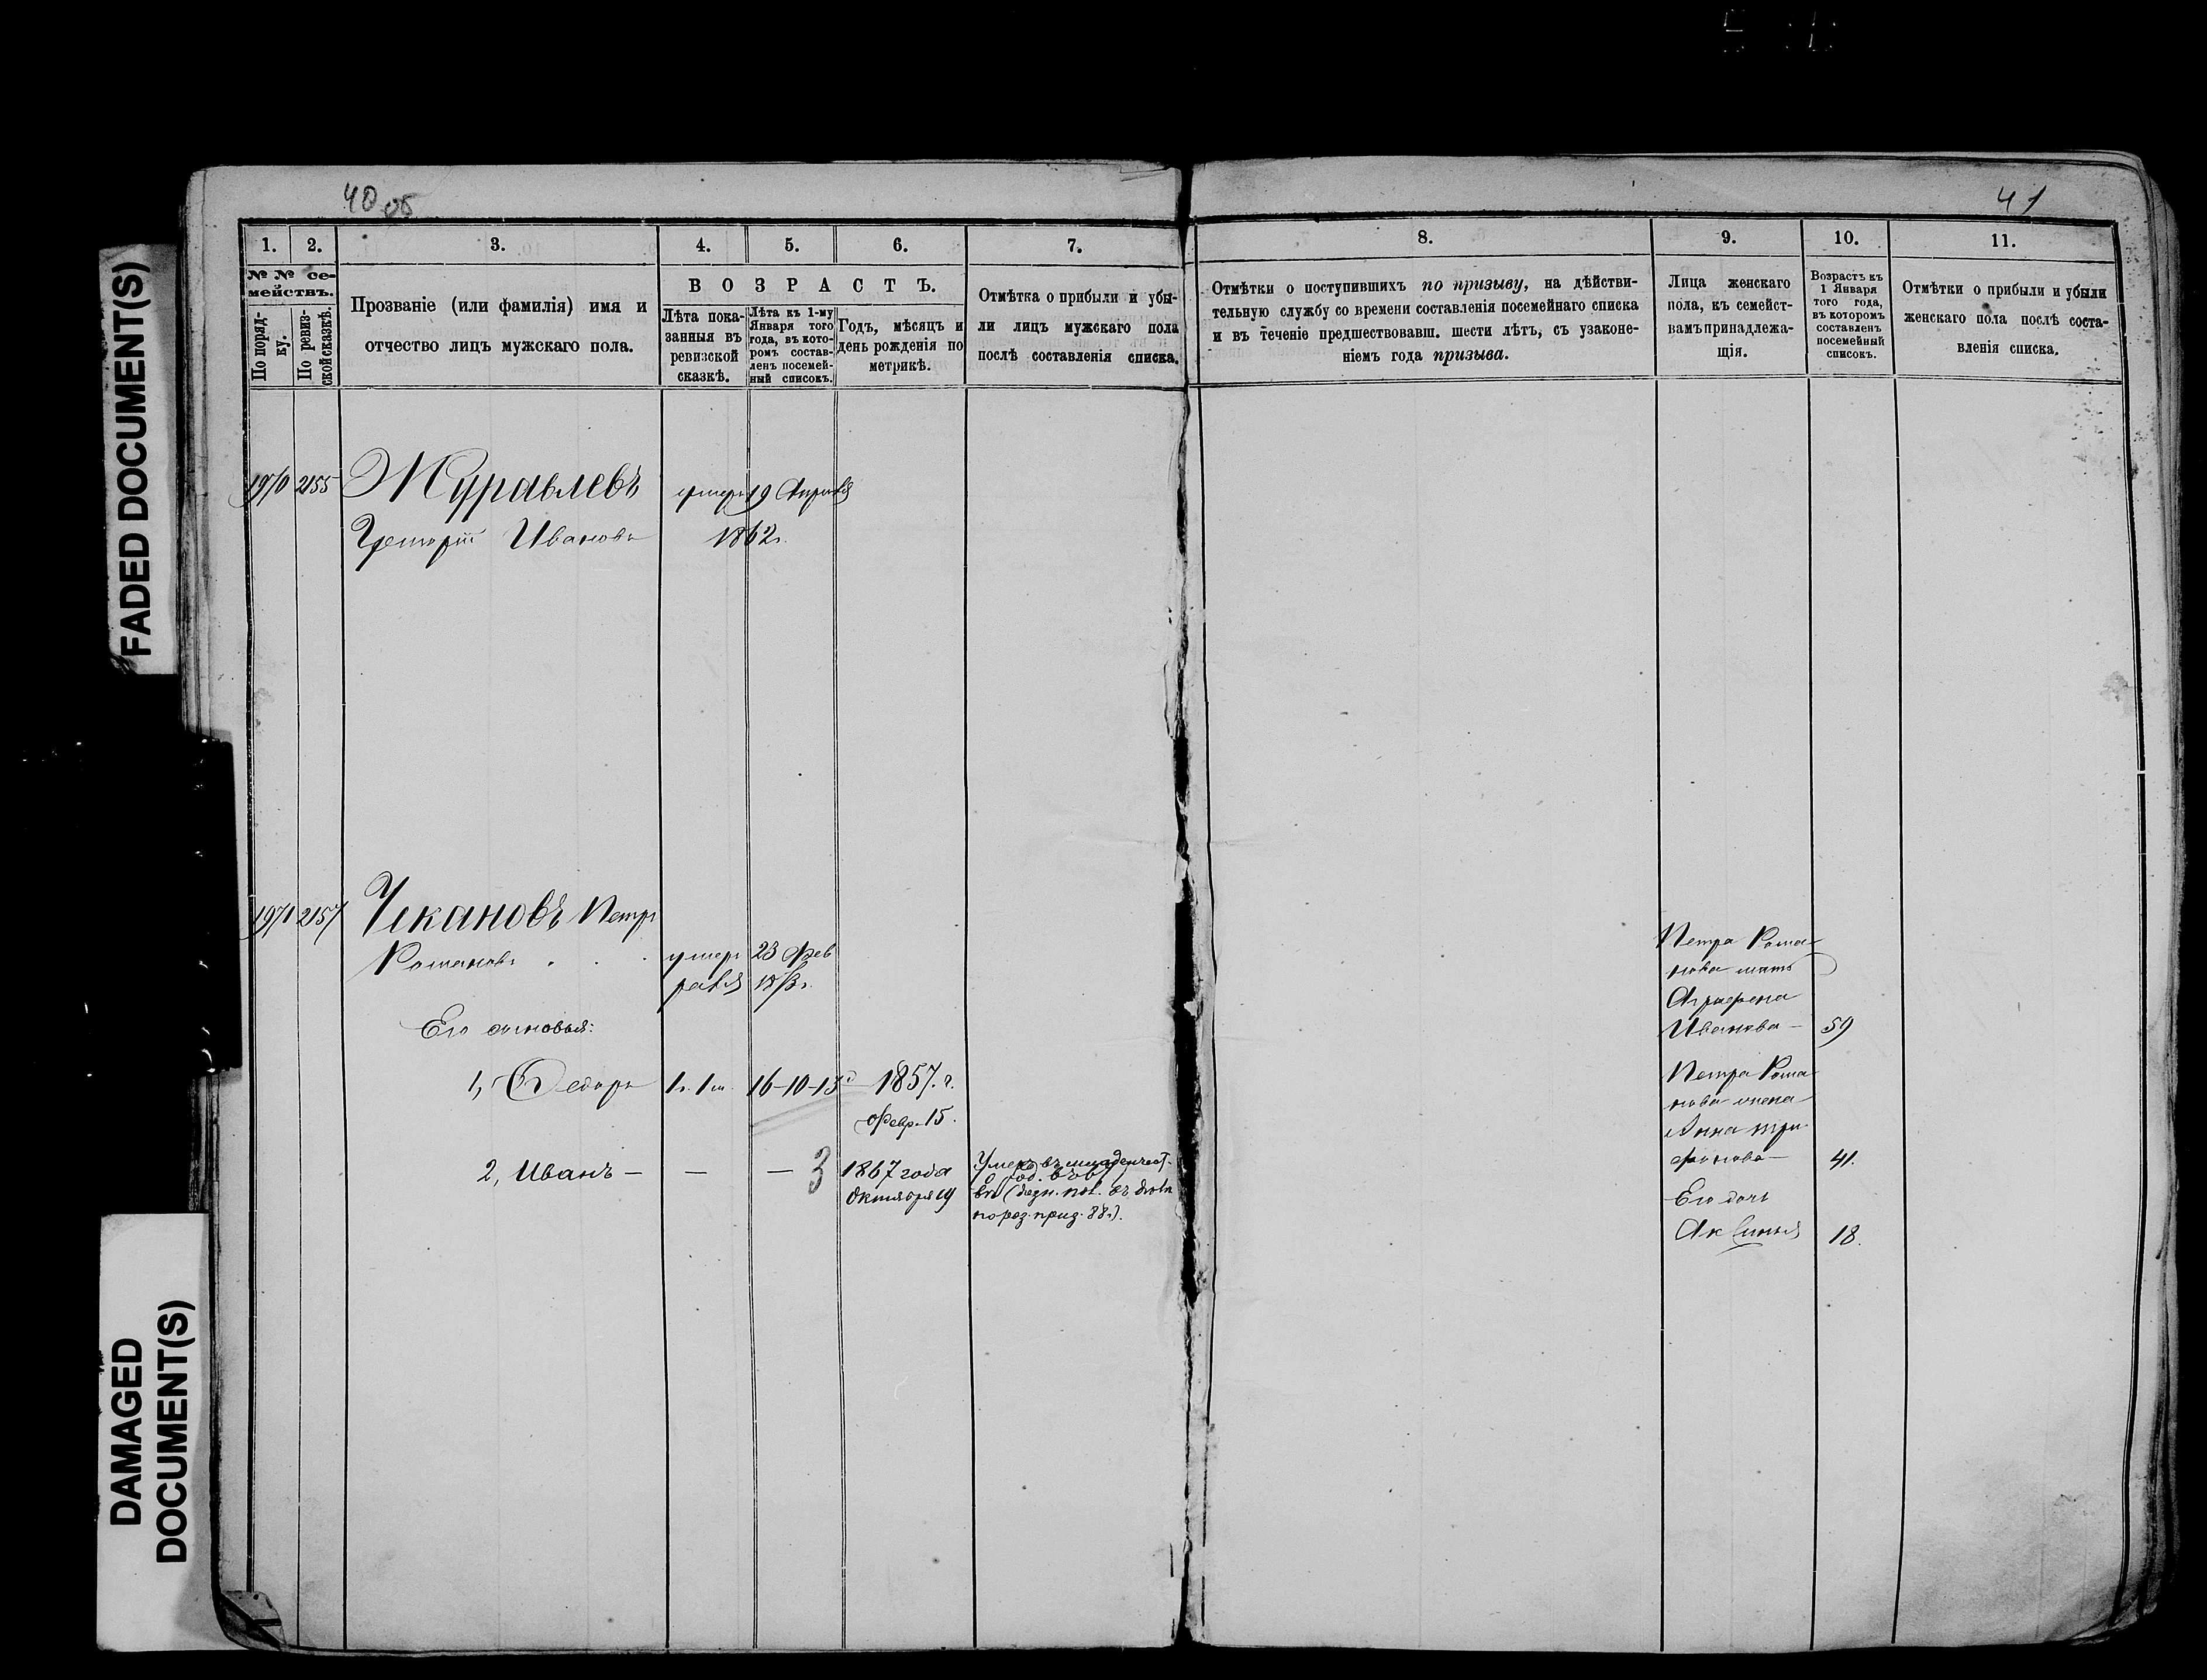 FADED DOCUMENT(S)
DAMAGED
DOCUMENT(S)
40 об
1. 2. 3. 4. 5. 6. 7.
№ № се-
мействъ.
По поряд-
ку.
По ревиз-
ской сказкѣ.
Прозваніе (или фамилія) имя и
отчество лицъ мужскаго пола.
ВОЗРАСТЪ.
Лѣта пока-
занныя въ
ревизской
сказкѣ.
Лѣта къ 1-му
Января того
года, въ кото-
ромъ состав-
ленъ посемей-
ный списокъ.
Годъ, мѣсяцъ и
день рожденія по
метрикѣ.
Отмѣтка о прибыли и убы-
ли лицъ мужскаго пола
послѣ составленія списка.
1970 2155 Журавлевъ умеръ 19 Апрѣля
Григорій Ивановъ 1862г.
1971 2157 Чекановъ Петръ
Романовъ умеръ 23 Фев
раля
Его сыновья:
1, Ѳедоръ 1г. 1м. 16-10-15 1857. г.
Февр. 15.
2, Иванъ — — — 3 1867 года
Октября 19
Умеръ въ младенчест-
41
8. 9. 10. 11.
Отмѣтки о поступившихъ по призыву, на дѣйстви-
тельную службу со времени составленія посемейнаго списка
и въ теченіе предшествовавш. шести лѣтъ, съ узаконе-
ніемъ года призыва.
Лица женскаго
пола, къ семейст-
вамъ принадлежа-
щія.
Возрастъ къ
1 Января
того года,
въ которомъ
составленъ
посемейный
списокъ.
Отмѣтки о прибыли и убыли
женскаго пола послѣ соста-
вленія списка.
Петра Рома-
нова мать
Аграфена
Иванова — 59
Петра Рома-
нова жена
Анна Три-
фонова — 41.
Его дочь
Аксинья 18.